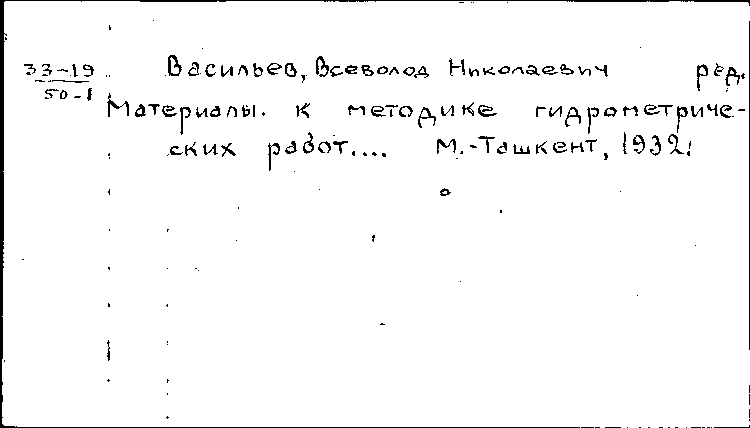 33-19 Васильев, Всеволод Николаевич ред.
50-1
Материалы. к методике гидрометриче-
ских работ.... М.-Ташкент, 1932.